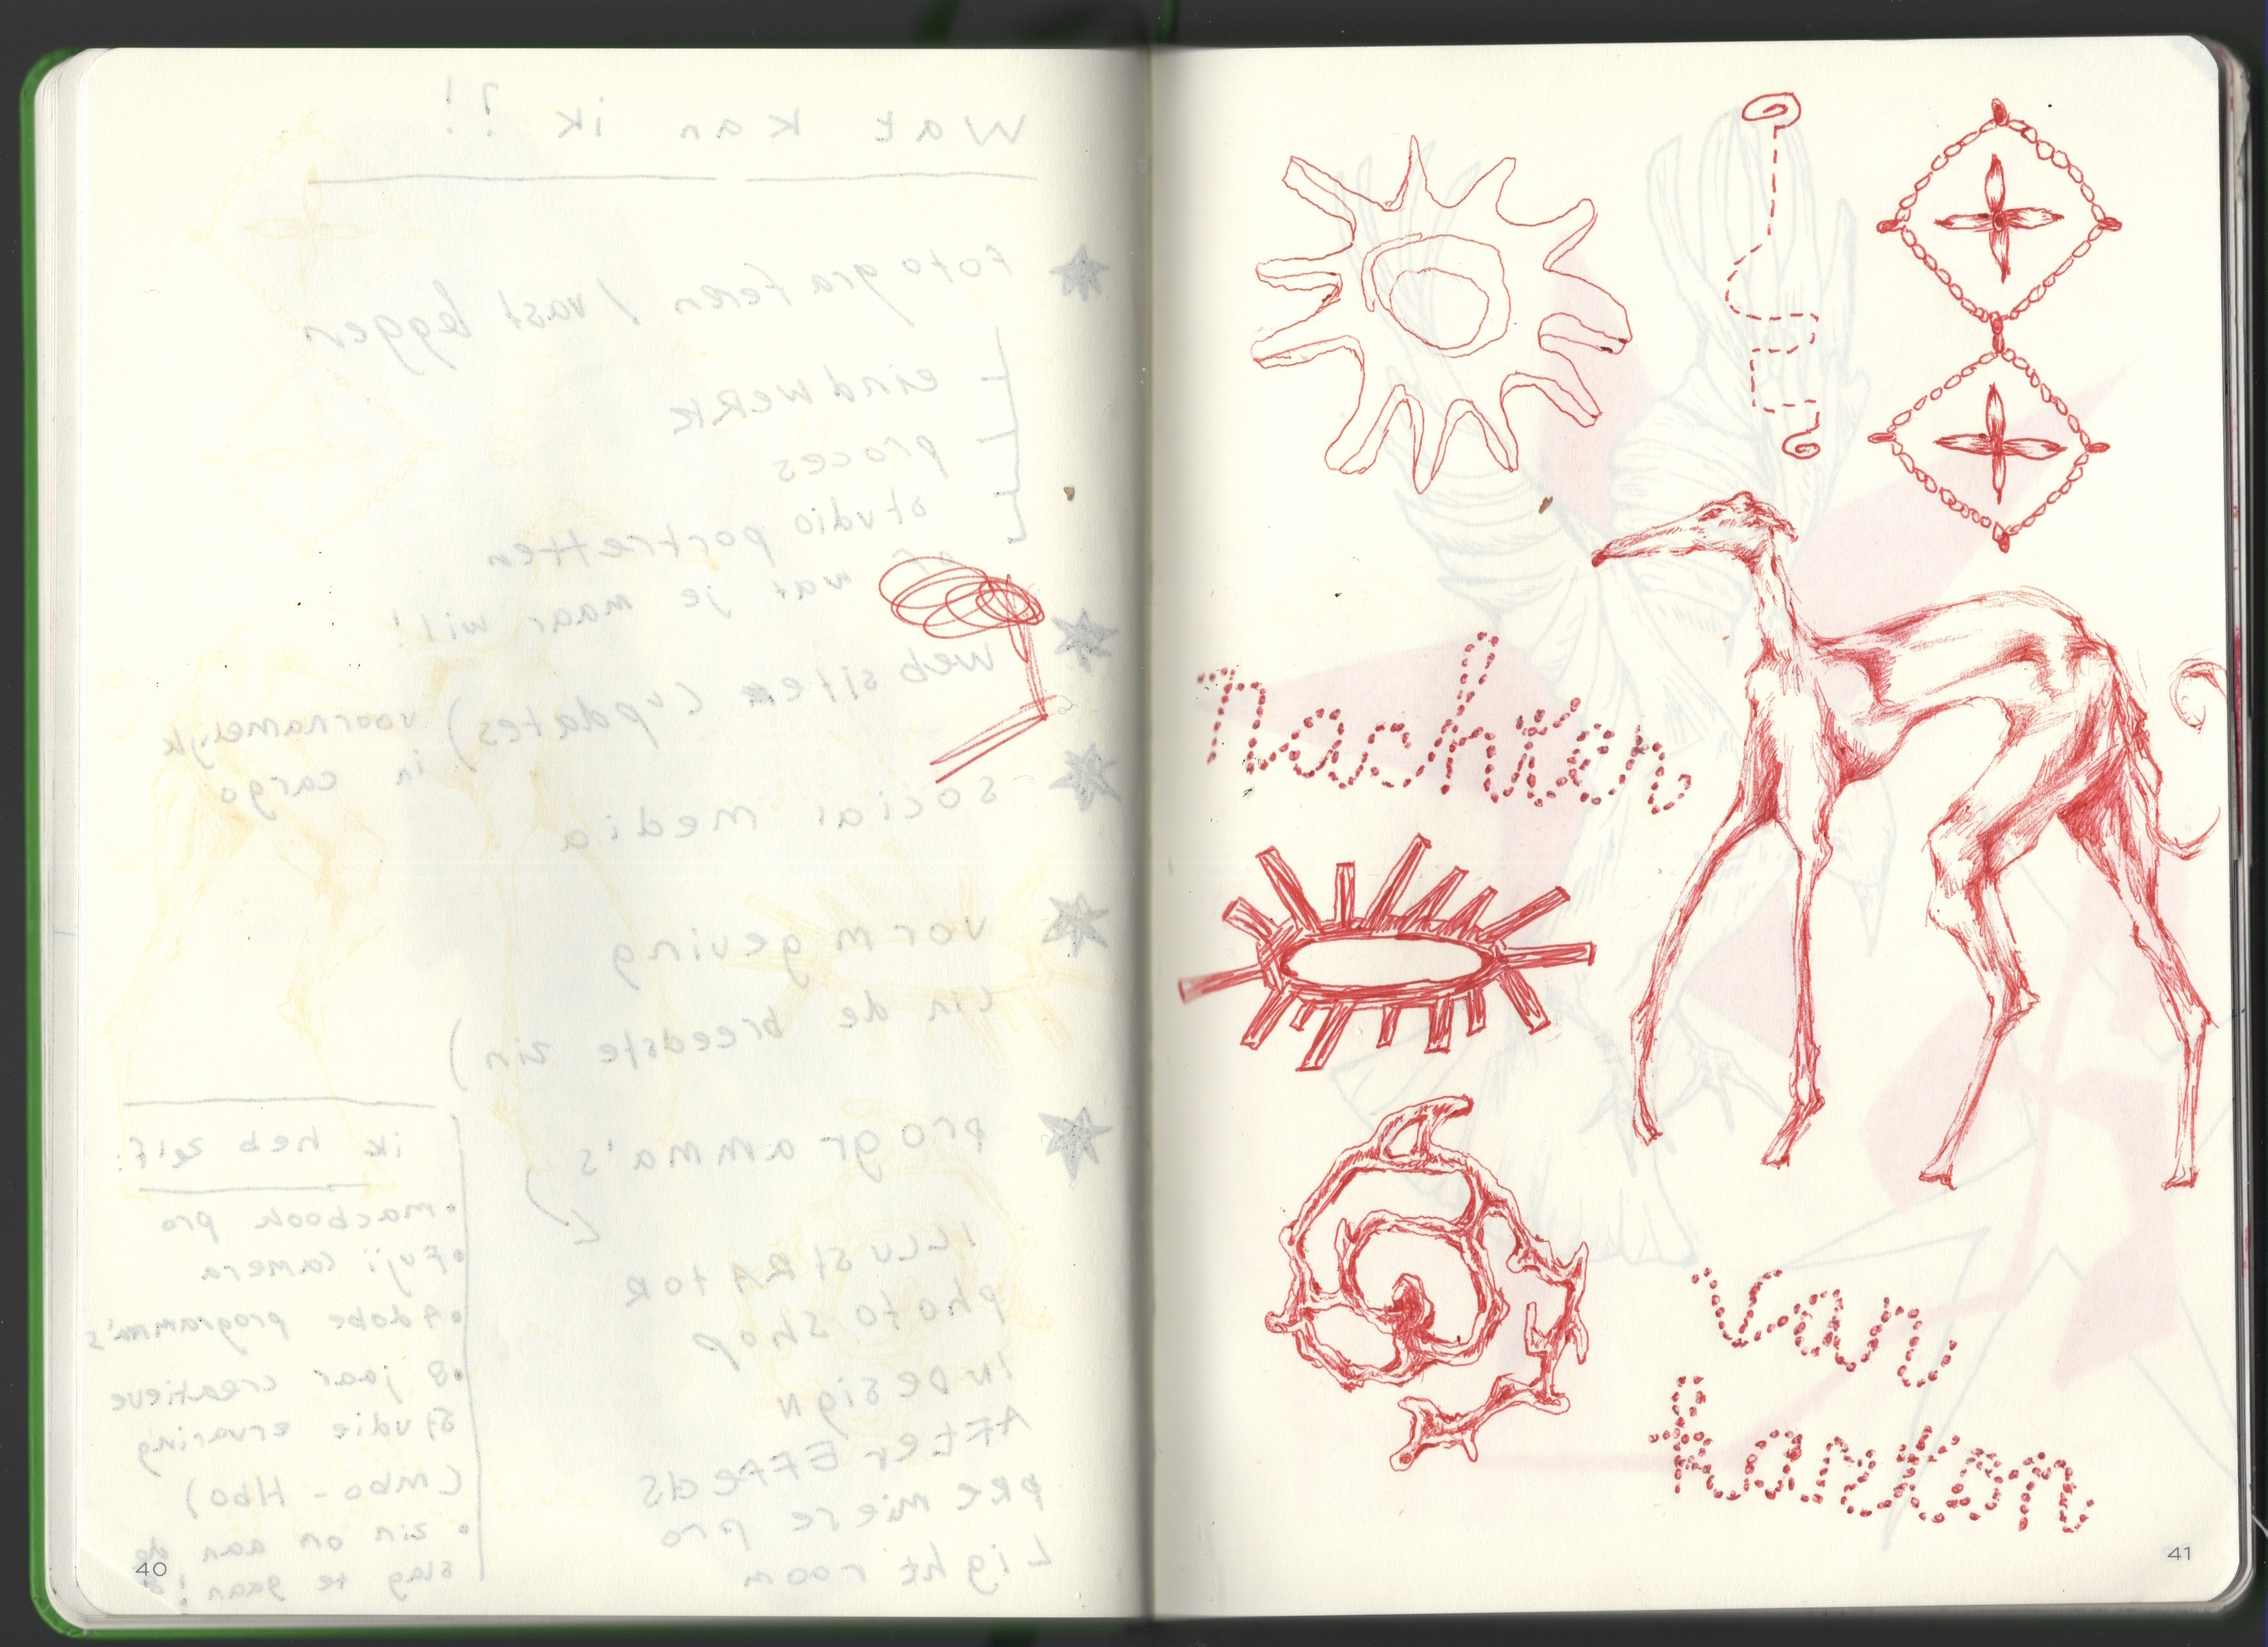 wat kan ik ?!
fotograferen / vast leggen
eindwerk
proces
studio portretten
of wat je maar wil!
websites (updates) voornamelijk
in cargo
social media
vormgeving
(in de breedste zin)
programma's
ILLUSTRATOR
photoshop
INDesign
AFter EFFects
premiere pro
Light room
ik heb zelf:
• macbook pro
• Fuji camera
• Adobe programma's
• 8 jaar creatieve
studie ervaring
(mbo - Hbo)
• zin om aan de
slag te gaan!
40
Nachten
van
karton
41